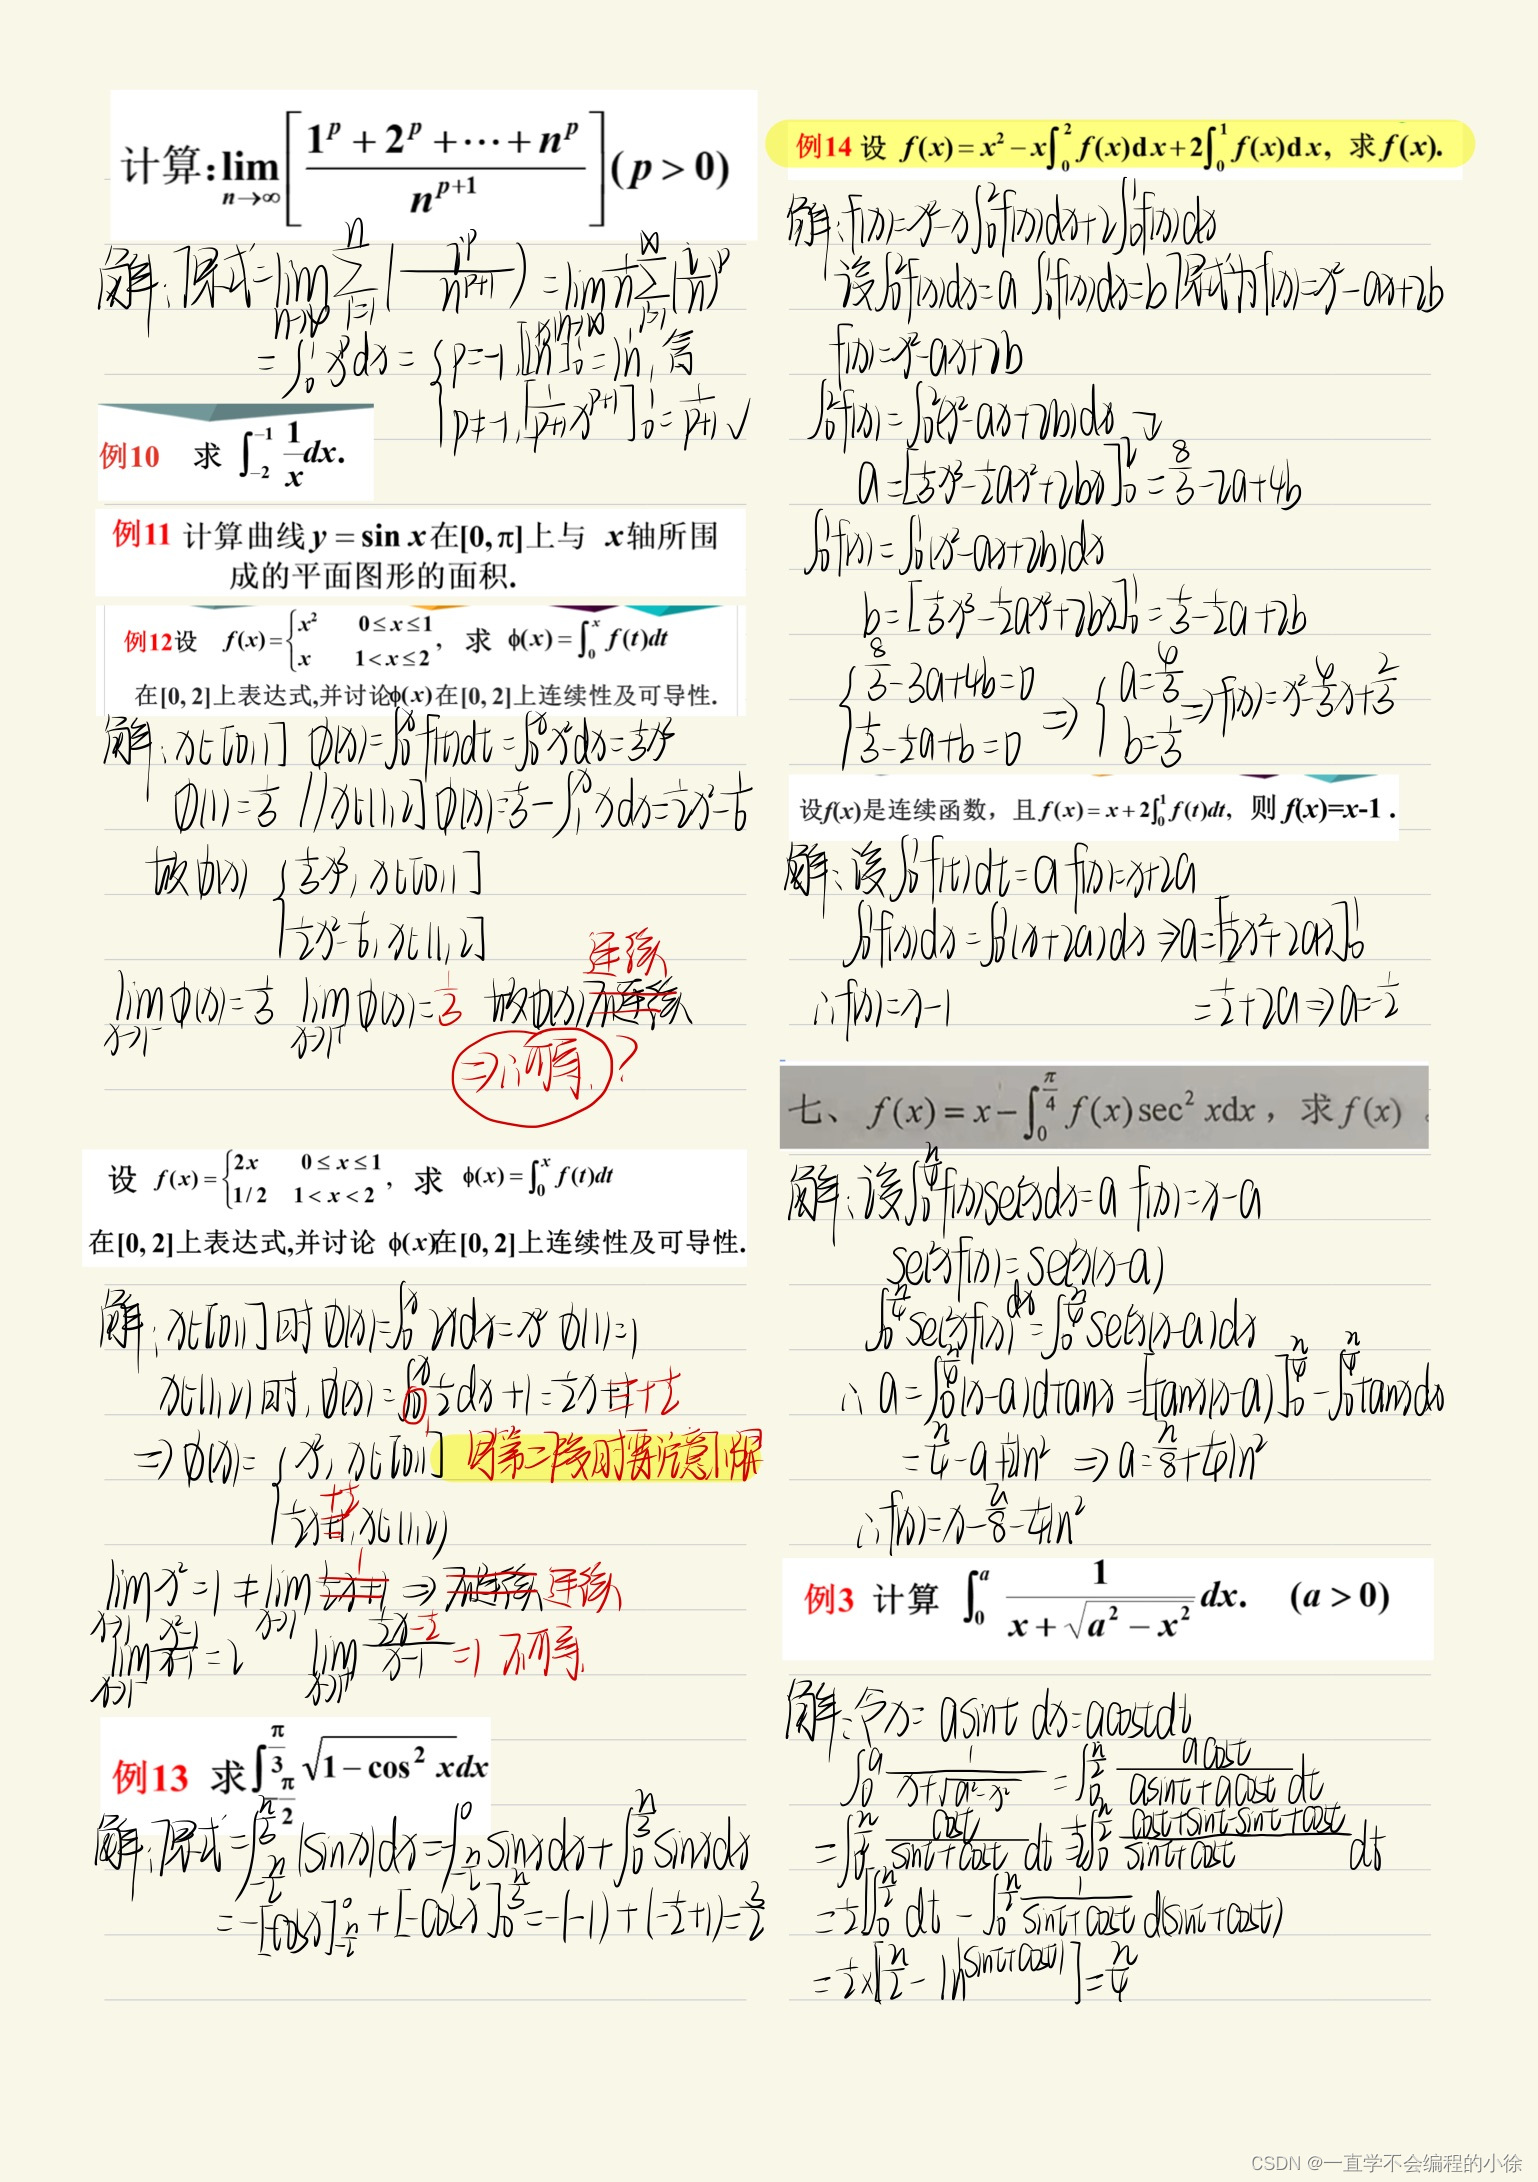 计算: lim n→∞ [ (1^p + 2^p + ⋯ + n^p) / n^(p+1) ] (p > 0)
解: 原式 = lim n→∞ ∑ i=1 n ( i^p / n^(p+1) ) = lim n→∞ 1/n ∑ i=1 ∞ (i/n)^p
= ∫_0^1 x^p dx = { p=-1,
p≠-1, [1/(p+1) x^(p+1)]_0^1 = 1/(p+1) √
例10 求 ∫_{-2}^{-1} 1/x dx.
例11 计算曲线 y = sin x 在[0, π]上与 x轴所围
成的平面图形的面积.
例12设 f(x) = { x² 0≤x≤1, x 1<x≤2 , 求 ϕ(x) = ∫_0^x f(t)dt
在[0, 2]上表达式,并讨论ϕ(x)在[0, 2]上连续性及可导性.
解: x∈[0,1] ϕ(x) = ∫_0^x f(t)dt = ∫_0^x x²dx = 1/3x³
ϕ(1) = 1/3 // x∈(1,2] ϕ(x) = 1/3 - ∫_1^x xdx = 1/2x² - 1/6
故ϕ(x) { 1/3x³, x∈[0,1]
1/2x² - 1/6, x∈(1,2]
连续
lim x→1⁻ ϕ(x) = 1/3 lim x→1⁺ ϕ(x) = 1/3 故ϕ(x)不连续
⇒ ∴可导. ?
设 f(x) = { 2x 0≤x≤1, 1/2 1<x<2 , 求 ϕ(x) = ∫_0^x f(t)dt
在[0, 2]上表达式,并讨论 ϕ(x)在[0, 2]上连续性及可导性.
解: x∈[0,1]时 ϕ(x) = ∫_0^x 2xdx = x² ϕ(1) = 1
x∈(1,2)时, ϕ(x) = ∫_1^x 1/2 dx + 1 = 1/2x + 1/2
⇒ ϕ(x) = { x², x∈[0,1] 用第二段时要注意下限
1/2x + 1/2, x∈(1,2)
lim x→1 x² = 1 ≠ lim x→1 1/2x+1 1 ⇒ 不连续 连续
lim x→1⁻ (x²-1)/(x-1) = 2 lim x→1⁺ (1/2x - 1/2)/(x-1) = 1 不可导.
例13 求 ∫_{-π/2}^{π/3} √(1 - cos² x) dx
解: 原式 = ∫_{-π/2}^{π/3} |sinx|dx = ∫_{-π/2}^0 sinxdx + ∫_0^{π/3} sinxdx
= -[-cosx]_{-π/2}^0 + [-cosx]_0^{π/3} = -(-1) + (-1/2+1) = 3/2
例14 设 f(x) = x² - x∫_0^2 f(x)dx + 2∫_0^1 f(x)dx, 求 f(x).
解: f(x) = x² - x∫_0^2 f(x)dx + 2∫_0^1 f(x)dx
设∫_0^2 f(x)dx = a ∫_0^1 f(x)dx = b 原式为 f(x) = x² - ax + 2b
f(x) = x² - ax + 2b
∫_0^2 f(x) = ∫_0^2 (x² - ax + 2b)dx
a = [1/3x³ - 1/2ax² + 2bx]_0^2 = 8/3 - 2a + 4b
∫_0^1 f(x) = ∫_0^1 (x² - ax + 2b)dx
b = [1/3x³ - 1/2ax² + 2bx]_0^1 = 1/3 - 1/2a + 2b
{ 8/3 - 3a + 4b = 0 ⇒ { a = 4/3 ⇒ f(x) = x² - 4/3x + 2/3
1/3 - 1/2a + b = 0 b = 1/3
设f(x)是连续函数, 且 f(x) = x + 2∫_0^1 f(t)dt, 则 f(x)=x-1 .
解: 设∫_0^1 f(t)dt = a f(x) = x + 2a
∫_0^1 f(x)dx = ∫_0^1 (x+2a)dx ⇒ a = [1/2x² + 2ax]_0^1
∴ f(x) = x - 1 = 1/2 + 2a ⇒ a = -1/2
七、 f(x) = x - ∫_0^{π/4} f(x) sec² xdx , 求 f(x) .
解: 设∫_0^{π/4} f(x)sec²xdx = a f(x) = x - a
sec²xf(x) = sec²x(x-a)
∫_0^{π/4} sec²xf(x)dx = ∫_0^{π/4} sec²x(x-a)dx
∴ a = ∫_0^{π/4} (x-a)dtanx = [tanx(x-a)]_0^{π/4} - ∫_0^{π/4} tanxdx
= π/4 - a + 1/2ln2 ⇒ a = π/8 + 1/4ln2
∴ f(x) = x - π/8 - 1/4ln2
例3 计算 ∫_0^a 1/(x + √(a² - x²)) dx. (a > 0)
解: 令x = asint dx = acostdt
∫_0^a 1/(x+√(a²-x²)) = ∫_0^{π/2} acost/(asint+acost) dt
= ∫_0^{π/2} cost/(sint+cost) dt = 1/2∫_0^{π/2} (cost+sint-sint+cost)/(sint+cost) dt
= 1/2[∫_0^{π/2} dt - ∫_0^{π/2} 1/(sint+cost) d(sint+cost)
= 1/2×[π/2 - ln|sint+cost|] = π/4
CSDN @一直学不会编程的小徐